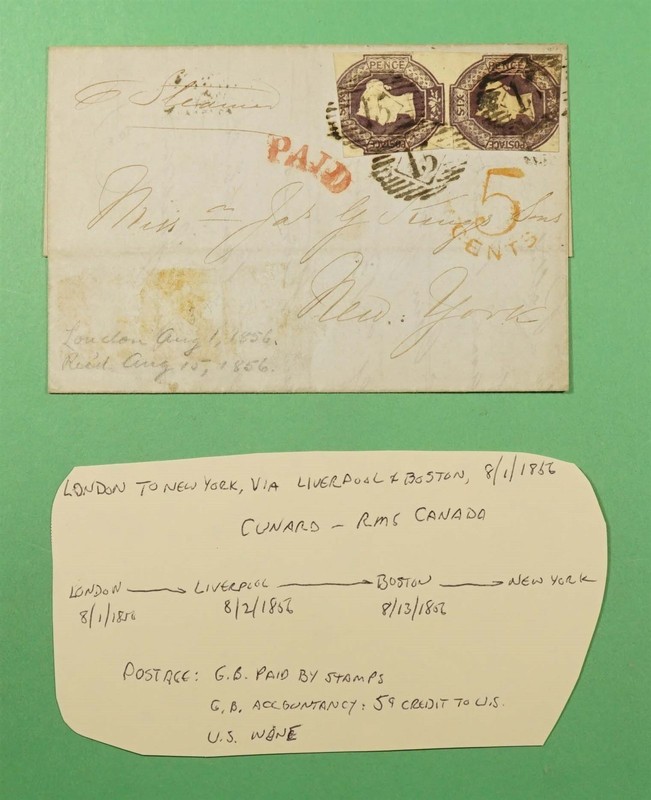 p Steamer
PENCE
SIX
POSTAGE
PENCE
SIX
POSTAGE
PAID
12
5
CENTS
Miss Jas G King Sons
New York
London Aug 1, 1856.
Recd Aug 15, 1856.
LONDON TO NEW YORK, VIA LIVERPOOL & BOSTON, 8/1/1856
CUNARD - RMS CANADA
LONDON → LIVERPOOL → BOSTON → NEW YORK
8/1/1856 8/2/1856 8/13/1856
POSTAGE: G.B. PAID BY STAMPS
G.B. ACCOUNTANCY: 5¢ CREDIT TO U.S.
U.S. NONE